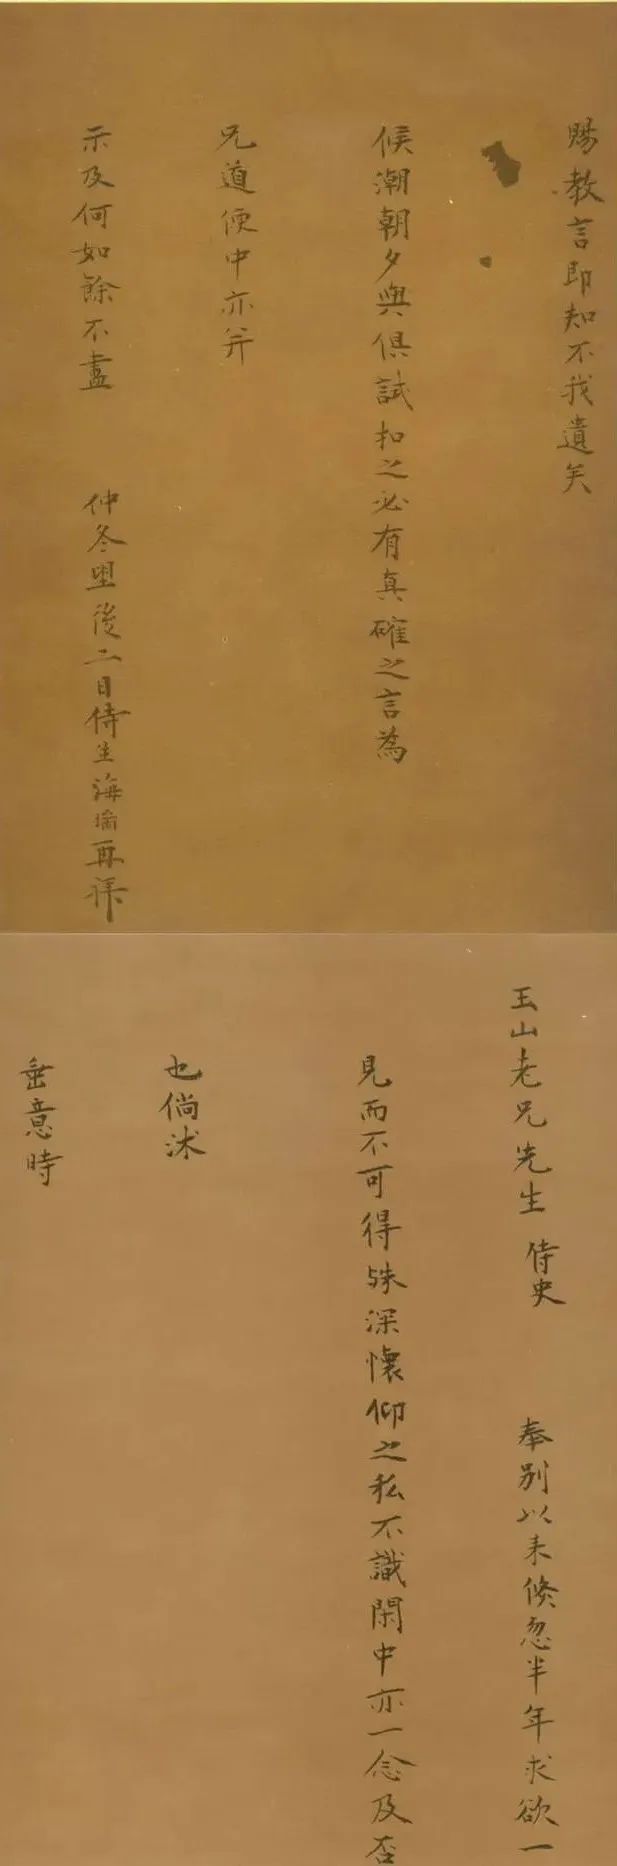 賜教言即知不我遺矣
候潮朝夕與俱試扣之必有真確之言為
兄道便中亦并
示及何如餘不盡 仲冬朢後二日侍生海瑞再拜
玉山老兄先生 侍史 奉別以来倐忽半年求欲一
見而不可得殊深懷仰之私不識閑中亦一念及否
也倘沐
垂意時